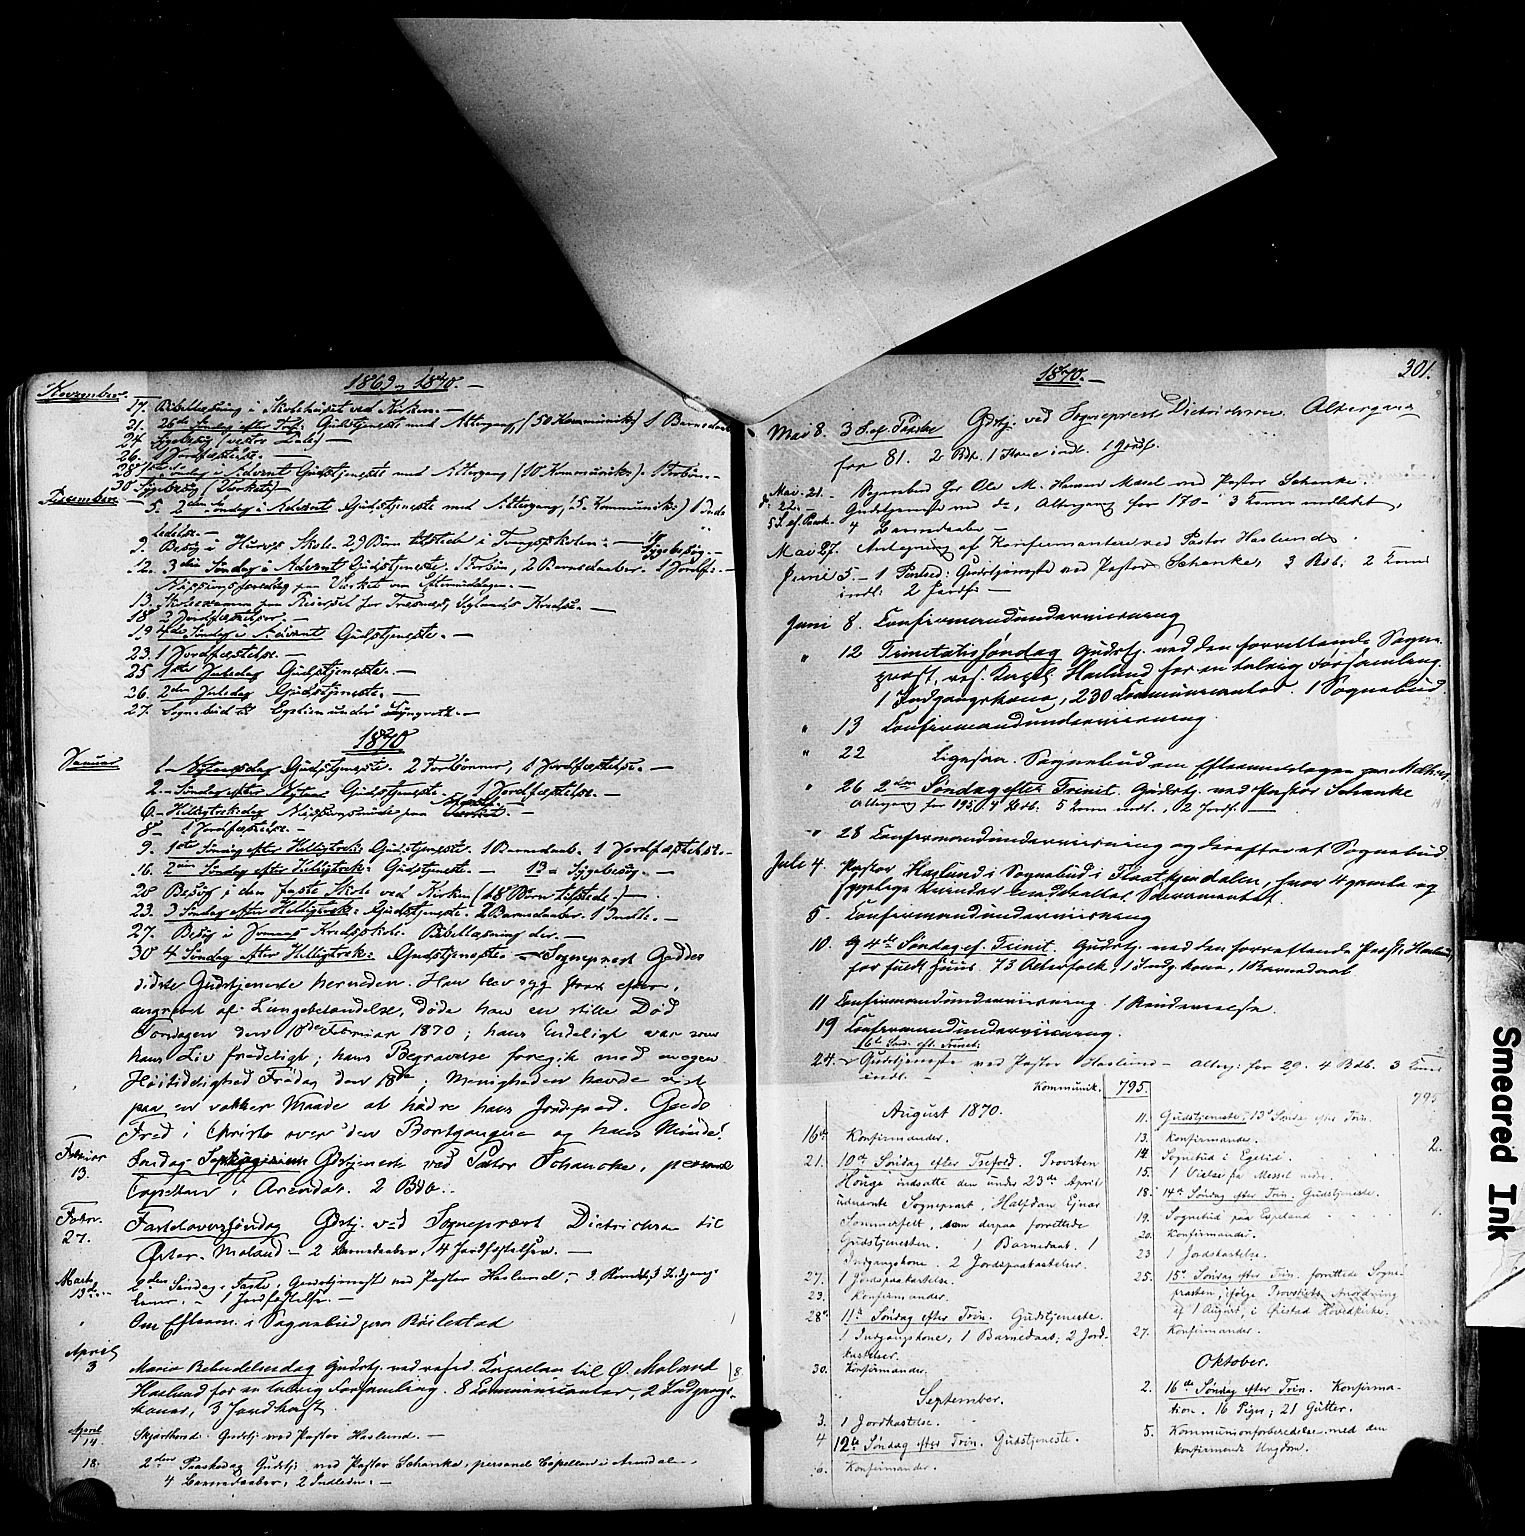 1869 og 1870. —
November
17. Bibellæsning i Skolehuset ved Kirken. —
21. 26de Søndag efter Tref: Gudstjeneste med Altergang (50 Kommunik:) 1 Barnedaab
24. Sygebesøg
26. 1 Jordfæstelse. —
28. 1ste Søndag i Advent Gudstjeneste med Altergang (10 Kommunik:).
30. Sygebesøg (Værket)
December
5. 2den Søndag i Advent Gudstjeneste med Altergang, (5 Kommunik:) 1 Indledelse. —
9. Besøg i Skole. 29 Børn tilstede Sygebesøg. —
12. 3die Søndag i Advent Gudstjeneste. 2 Barnedaaber. 1 Jordf: —
Missionsforedrag paa Værket om Eftermiddagen. —
13. Skoleexamen paa
18. 2 Jordfæstelser. —
19. 4de Søndag i Advent Gudstjeneste. —
23. 1 Jordfæstelse. —
25. 1ste Juledag Gudstjeneste. —
26. 2den Juledag Gudstjeneste. —
27. Sognebud til
1870
Januar
1. Nytaarsdag Gudstjeneste. 2 Forbønner, 1 Jordfæstelse. —
2. Søndag efter Nytaar Gudstjeneste. 1 Jordfæstelse. —
6. Helligtrekdag paa
8. 1 Jordfæstelse. —
9. 1ste Søndag efter Helligtrek: Gudstjeneste. 1 Barnedaab. 1 Jordfæstelse. —
16. 2den Søndag efter Helligtrek: Gudstjeneste. — Sygebesøg. —
20. Besøg i den faste Skole ved Kirken (18 Børn tilstede.) —
23. 3 Søndag efter Helligtrek: Gudstjeneste. 2 Barnedaaber. 1 Indl. —
27. Besøg i Kredsskole. Bibellæsning der. —
30. 4 Søndag efter Helligtrek: Gudstjeneste — Sognepræst Geddes
sidste Gudstjeneste herneden. Han blev syg strax efter,
angrebet af Lungebetændelse, døde han en stille Død
Torsdagen den 10de Februar 1870; hans Endeligt var som
hans Liv fredeligt; hans Begravelse foregik med megen
Høitidelighed Fredag den 18de; Menigheden havde vist
paa en vakker Maade at hædre hans Jordefærd. Guds
Fred i Christo over den Bortgangne og hans Minde!
Februar
13. Søndag Septuagesima Gdstjeneste ved Pastor Schancke, personel
Capellan i Arendal. 2 Bdb.
Febr.
27. Fastelavnssøndag Gdstj. ved Sognepræst Dietrichson til
Øster-Moland — 2 Barnedaaber, 4 Jordfæstelser. —
Marts
13de 2den Søndag i Faste, Gudstjeneste ved Pastor Haslund, — 3 Indgangskoner. — 1 Jordfæstelse. —
Om Efterm. i Sognebud paa Bøilestad
April
3 Mariæ Bebudelsesdag Gudstj. ved resid. Kapellan til Ø. Moland
Haslund for en talrig Forsamling. 8 Communicanter, 2 Indgangs-
koner, 3 Jordkast.
April
14. Skjærthorsd. Gudstj ved Pastor Haslund. —
18. 2den Paaskedag Gudstj. ved Pastor Schanke, personel Capellan i Arendal.
4 Barnedaaber, 2 Indledn: —
301.
1870. —
Mai 8. 3 S. ef. Paaske Gdstj. ved Sognepræst Dietrichson. Altergang
for 81. 2 Bdb. 1 Kone indl. 1 Jordf.
Mai 21. — Sognebud for Ole M. Hansen ved Pastor Schanke.
22. — Gudstjeneste ved do, Altergang for 170 — 3 Koner indledet,
5 S. ef. Paask. 4 Barnedaaber —
Mai 27. Antegning af Konfirmanter ved Pastor Haslund.
Juni 5. — 1 Pintsed: Gudstjeneste ved Pastor Schanke, 3 Bdb: 2 Koner
indl: 2 Jordf: —
Juni 8. Confirmandundervisning
" 12 Trinitatissøndag Gudstj. ved den forrettende Sogne-
præst, res. Kapel. Haslund for en talrig Forsamling.
1 Indgangskone, 230 Communicanter. 1 Sognebud.
" 13 Confirmandundervisning.
" 22 Ligesaa. Sognebud om Eftermiddagen paa
" 26 2den Søndag efter Trinit. Gudstj. ved Pastor Schanke
Altergang for 195, 4 Bdb: 5 Koner indl., 2 Jordf. —
" 28 Confirmandundervisning og derefter af Sognebud.
Juli 4. Pastor Haslund i Sognebud i hvor 4 gamle og
sygelige Kvinder Sacramentet.
5. Confirmandundervisning
10. 4de Søndag ef. Trinit. Gudstj. ved den forrettende Præst, Haslund,
for fuldt Huus. 73 Alterfolk, 1 Indg.kone, 1 Barnedaab
11 Confirmandundervisning. 1 Renderelse.
19 Confirmandundervisning.
6te Sønd. eft. Trinit:
24. Gudstjeneste ved Pastor Haslund — Alterg: for 29. 4 Bdb. 3 Koner
indl. —
Kommunik. 795.
August 1870.
16de Konfirmander.
21. 10de Søndag efter Trefold. Provsten
Houge indsatte den under 23de April
udnævnte Sognepræst, Halfdan Ejnar
Sommerfelt, som derpaa forrettede
Gudstjenesten. 1 Barnedaab. 1
Indgangskone. 2 Jordspaakastelser.
27. 1 Jordspaakastelse.
23. Konfirmander.
28de 11te Søndag efter Trin. Gudstjeneste.
1 Indgangskone, 1 Barnedaab, 2 Jord-
kastelser.
30. Konfirmander.
September.
3. 1 Jordkastelse.
4 12te Søndag efter Trin. Gudstjeneste.
6. Konfirmander.
795
11. Gudstjeneste, 13de Sønd. efter Trin.
13. Konfirmander.
14. Sognebud i Egelid. 2.
15. 1 Vielse paa Messel nedre.
18. 14de Søndag efter Trin. Gudstjeneste.
19. Sognebud paa Espeland 1.
20. Konfirmander.
23 1 Jordskastelse.
25. 15de Søndag efter Trin. forrettede Sogne-
præsten, ifølge Provstiets Anordning
af 1 August, i Øiestad Hovedkirke.
27. Konfirmander.
Oktober.
2. 16de Søndag efter Trin. Konfirma-
tion. 16 Piger; 21 Gutter.
5. Kommunionforberedelse med den
konfirmerede Ungdom.
Smeared Ink